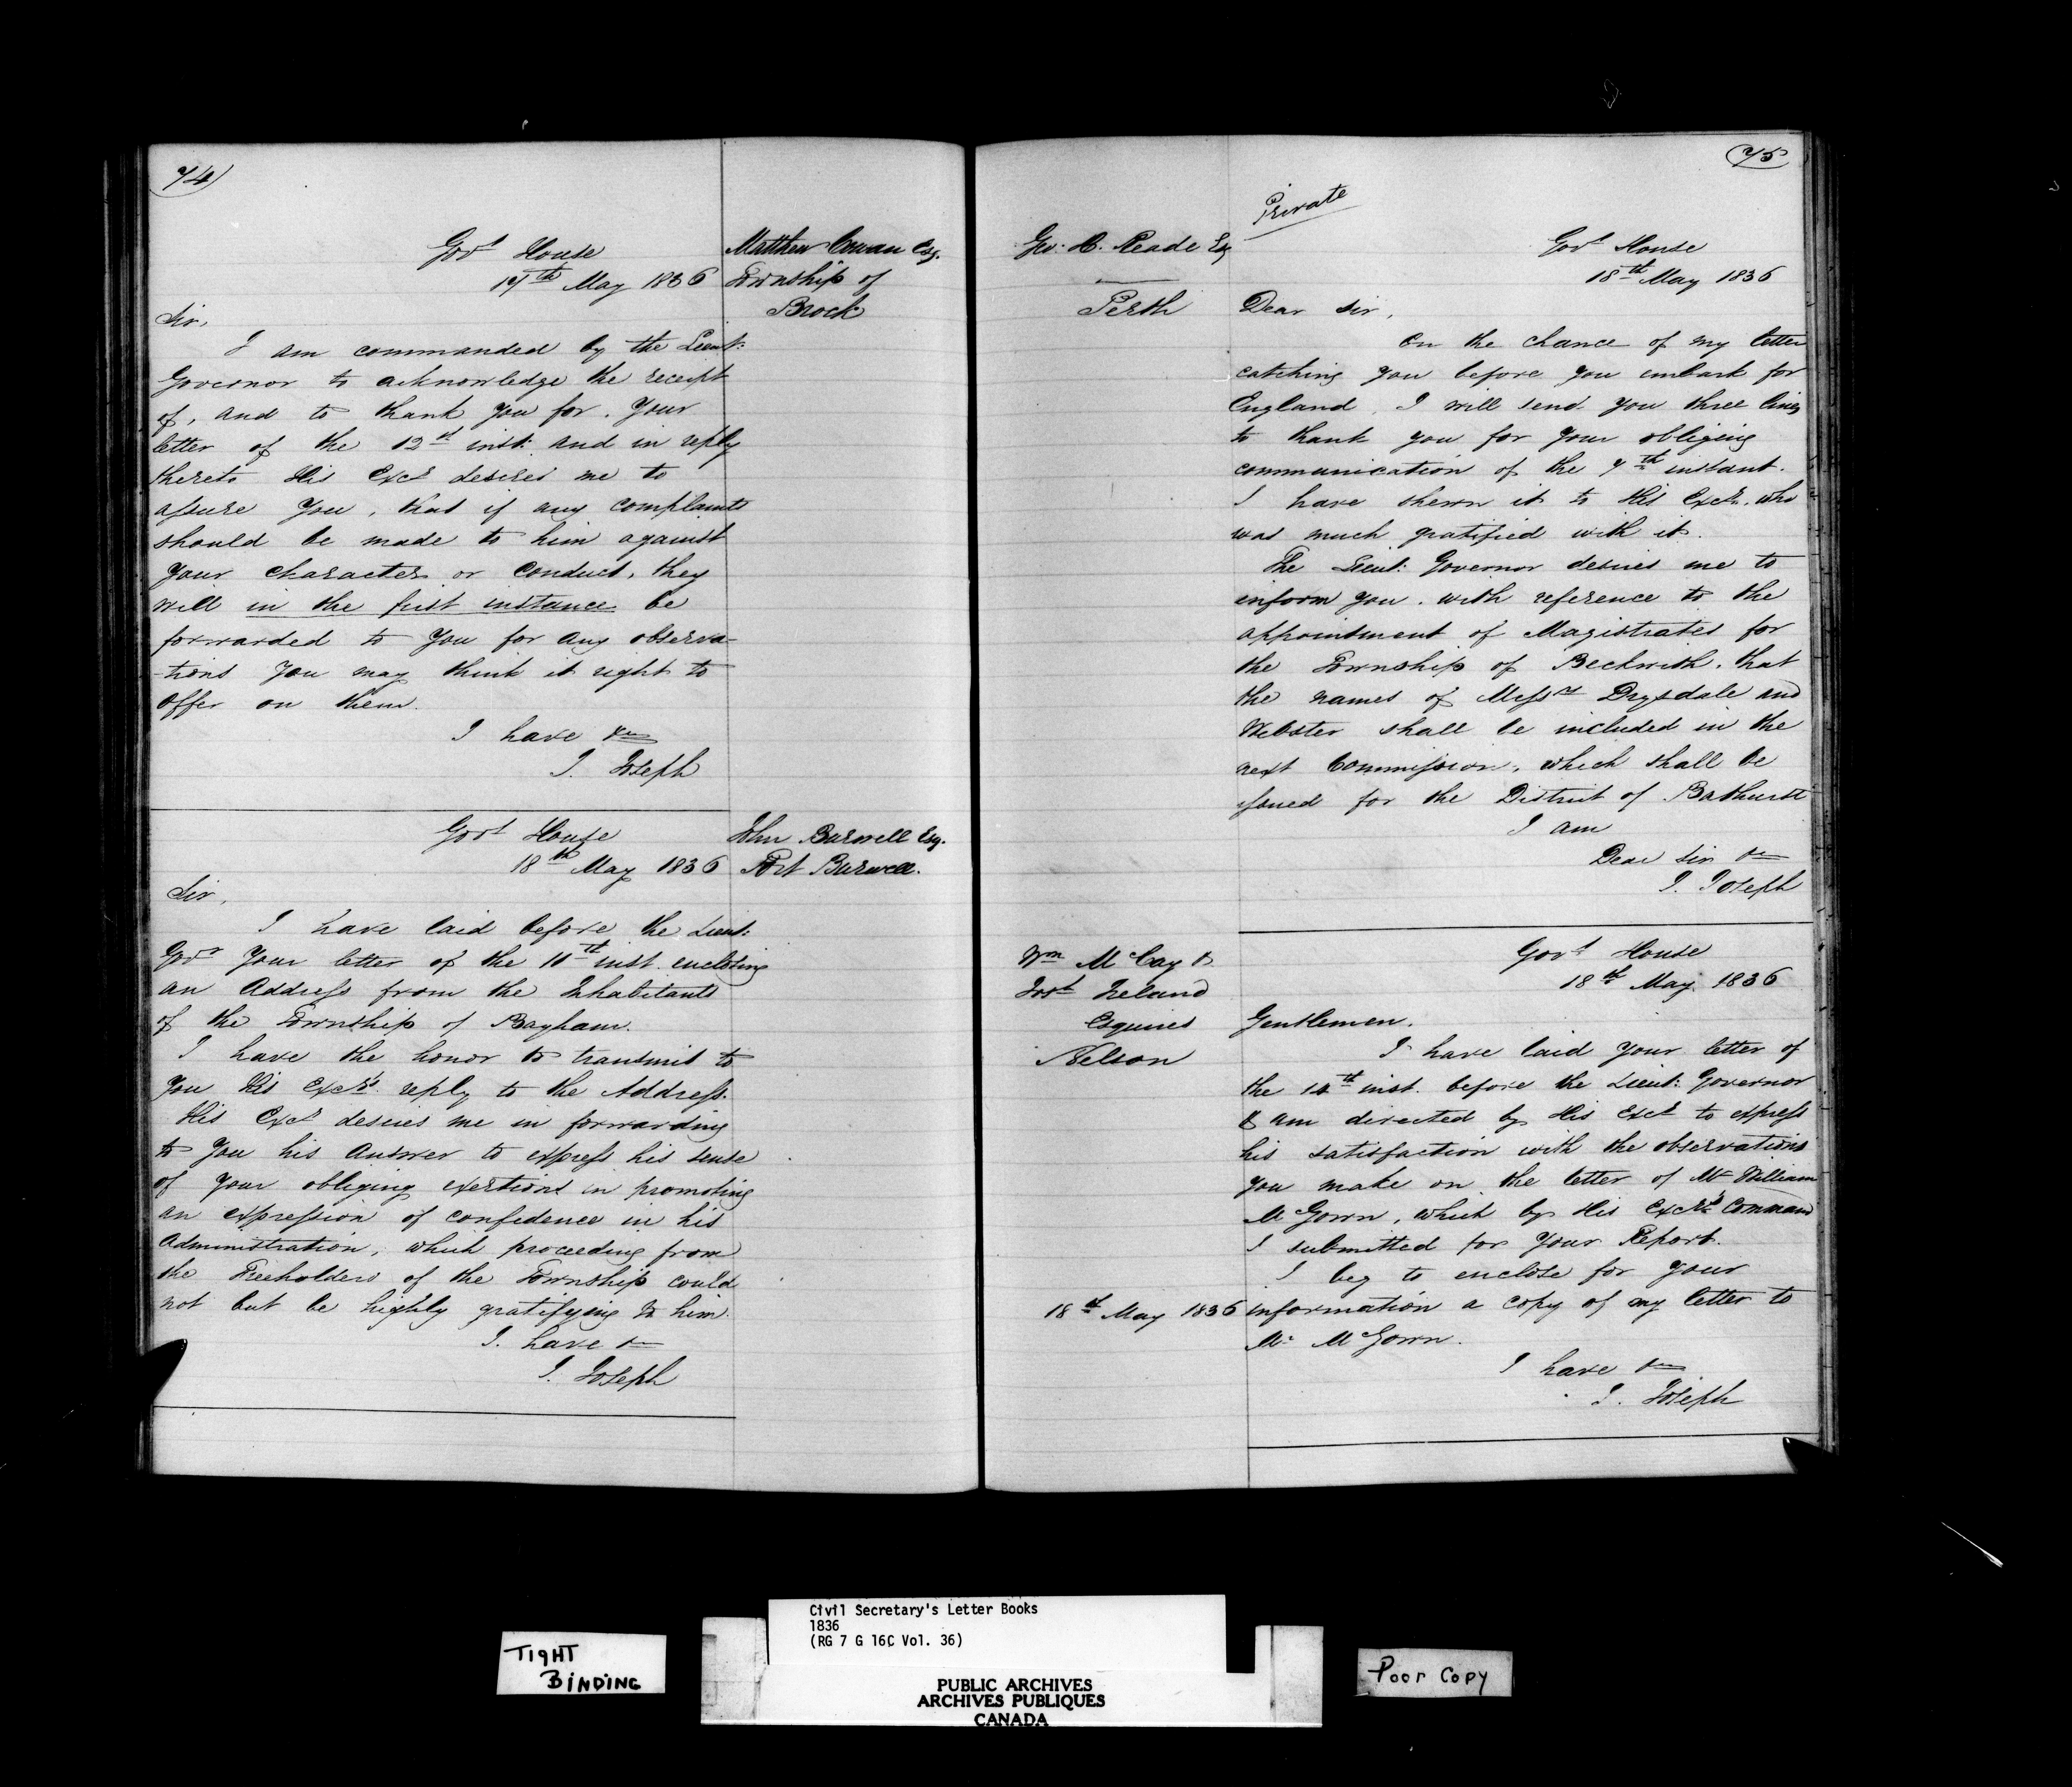 74
Govt House
17th May 1836
Matthew Cowan Esq.
Township of
Brock
Sir,
I am commanded by the Lieut:
Governor to acknowledge the receipt
of, and to thank you for, your
letter of the 12th inst: and in reply
thereto His Excy desires me to
assure you, that if any complaints
should be made to him against
your character or conduct, they
will in the first instance be
forwarded to you for any observa-
-tions you may think it right to
offer on them.
I have &c
J. Joseph
Govt House
18th May 1836
John Burwell Esq.
Port Burwell.
Sir,
I have laid before the Lieut:
Govr your letter of the 10th inst. enclosing
an Address from the Inhabitants
of the Township of Bayham.
I have the honor to transmit to
you His Excy's reply to the Address.
His Excy desires me in forwarding
to you his answer to express his sense
of your obliging exertions in promoting
an expression of confidence in his
Administration, which proceeding from
the Freeholders of the Township could
not but be highly gratifying to him.
I have &c
J. Joseph
75
Private
Geo: H. Reade Esq
Perth
Govt House
18th May 1836
Dear Sir,
On the chance of my letter
catching you before you embark for
England, I will send you three lines
to thank you for your obliging
communication of the 7th instant.
I have shewn it to His Excy. who
was much gratified with it.
The Lieut: Governor desires me to
inform you, with reference to the
appointment of Magistrates for
the Township of Beckwith, that
the names of Messrs Drysdale and
Webster shall be included in the
next Commission, which shall be
issued for the District of Bathurst
I am
Dear Sir &c
J. Joseph
Wm McCay &
Ireland
Esquires
Nelson
Govt House
18th May 1836
Gentlemen,
I have laid your letter of
the 14th inst. before the Lieut: Governor
& am directed by His Excy to express
his satisfaction with the observations
you make on the letter of Mr William
McGown, which by His Excy's Command
I submitted for your Report.
I beg to enclose for your
18th May 1836 information a copy of my letter to
Mr McGown.
I have &c
J. Joseph
TIGHT
BINDING
Civil Secretary's Letter Books
1836
(RG 7 G 16C Vol. 36)
PUBLIC ARCHIVES
ARCHIVES PUBLIQUES
CANADA
Poor Copy